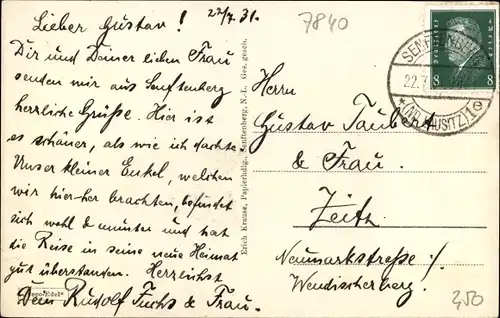 22/7. 31.
Lieber Gustav!
Dir und Deiner lieben Frau
senden wir aus Senftenberg
herrliche Grüße. Hier ist
es schöner, als wie ich dachte
Unser kleiner Enkel, welchen
wir hierher brachten, befindet
sich wohl & munter und hat
die Reise in seine neue Heimat
gut überstanden. Herzlichst
Dein Rudolf Fuchs & Frau.
Erich Krause, Papierhdlg., Senftenberg, N.-L. Ges. gesch.
7840
SENFTENBERG
22.7.
*(NIEDERLAUSITZ)1e
8 8
Herrn
Gustav Taubert
& Frau.
Zeitz
Neumarkstraße /.
Wendischerberg.
2,50